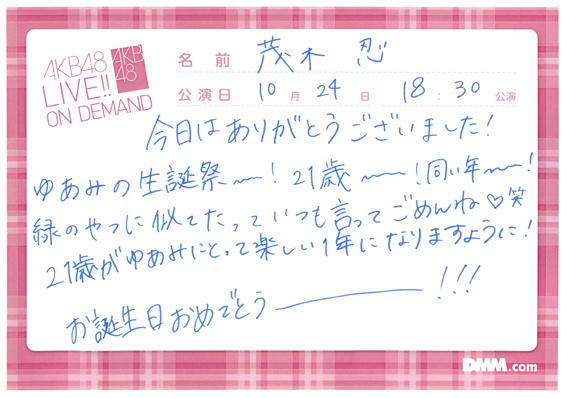 AKB48
LIVE!!
ON DEMAND
AKB
48
名前 茂木 忍
公演日 10月24日 18:30公演
今日はありがとうございました!
ゆあみの生誕祭〜!21歳〜!同い年〜!
緑のやつに似てたっていつも言ってごめんね♡笑
21歳がゆあみにとって楽しい1年になりますように!
お誕生日おめでとう―――!!!
DMM.com